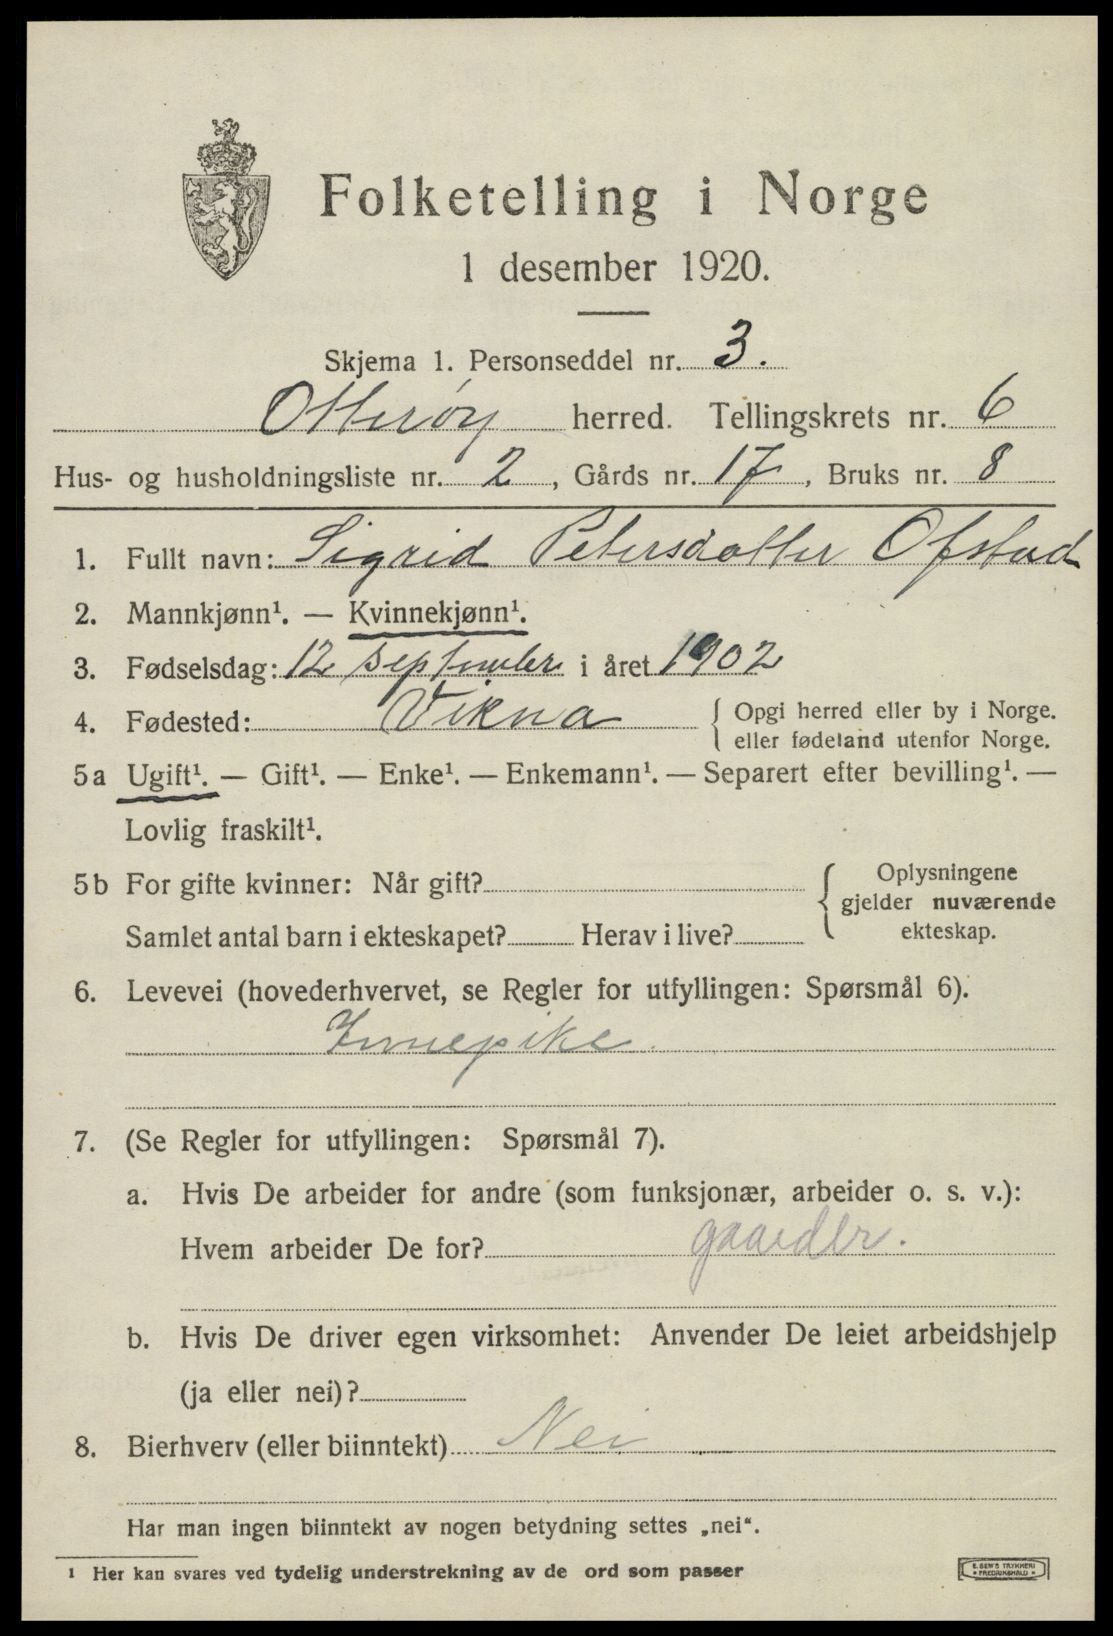 Folketelling i Norge
1 desember 1920.
Skjema 1. Personseddel nr. 3.
Otterøy herred. Tellingskrets nr. 6
Hus- og husholdningsliste nr. 2, Gårds nr. 17, Bruks nr. 8
1. Fullt navn: Sigrid Petersdatter Ofstad
2. Mannkjønn¹. — Kvinnekjønn¹.
3. Fødselsdag: 12 september i året 1902
4. Fødested: Vikna { Opgi herred eller by i Norge.
eller fødeland utenfor Norge.
5a Ugift¹. — Gift¹. — Enke¹. — Enkemann¹. — Separert efter bevilling¹. —
Lovlig fraskilt¹.
5b For gifte kvinner: Når gift? { Oplysningene
gjelder nuværende
Samlet antal barn i ekteskapet? Herav i live? ekteskap.
6. Levevei (hovederhvervet, se Regler for utfyllingen: Spørsmål 6).
Innepike.
7. (Se Regler for utfyllingen: Spørsmål 7).
a. Hvis De arbeider for andre (som funksjonær, arbeider o. s. v.):
Hvem arbeider De for? gaardbr.
b. Hvis De driver egen virksomhet: Anvender De leiet arbeidshjelp
(ja eller nei)?
8. Bierhverv (eller biinntekt) Nei
Har man ingen biinntekt av nogen betydning settes „nei“.
¹ Her kan svares ved tydelig understrekning av de ord som passer
E. SEM'S TRYKKERI
FREDRIKSHALD